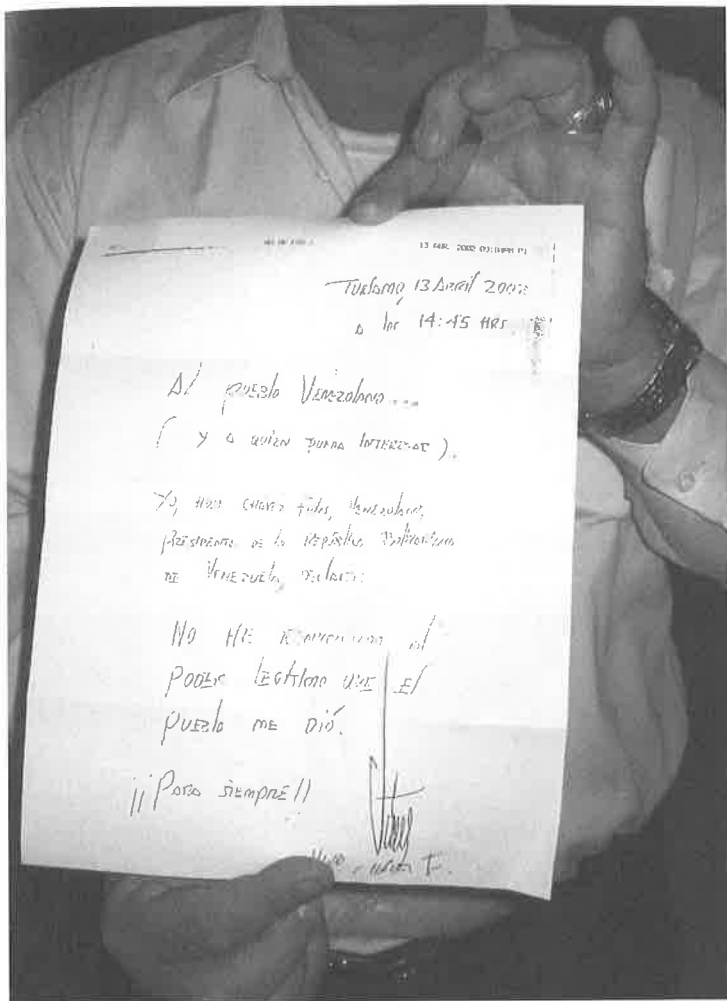 13 ABR. 2002 P1
Turiamo, 13 Abril 2002
a las 14:45 HRS.
Al pueblo Venezolano...
( y a quien pueda interesar ).
Yo, Hugo Chávez Frías, Venezolano,
Presidente de la República Bolivariana
de Venezuela, declaro:
NO HE renunciado al
poder legítimo que el
pueblo me dió.
¡¡Para siempre!!
Hugo Chávez F.